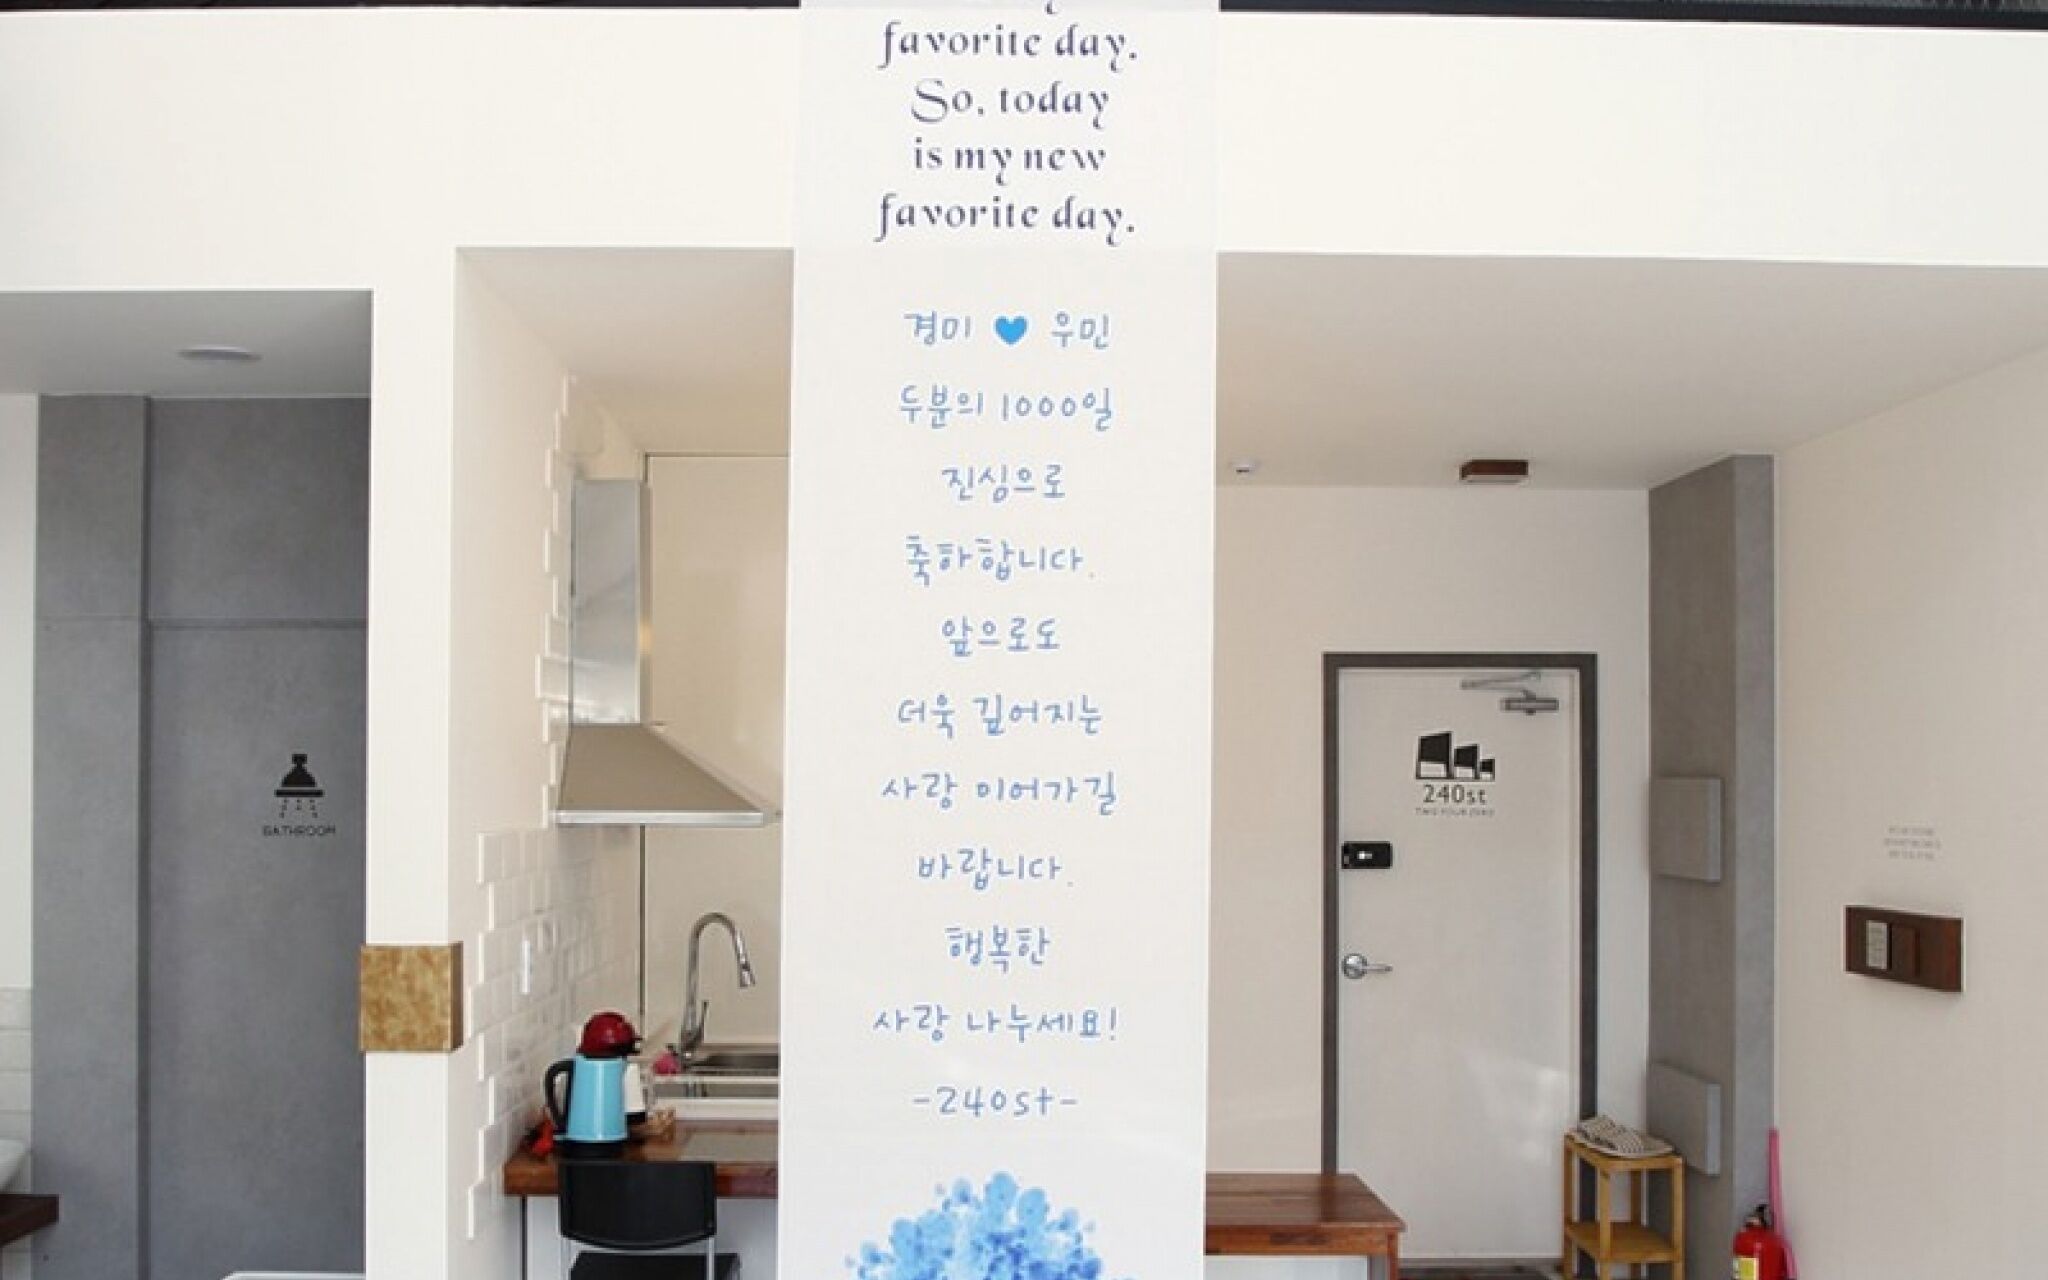 favorite day.
So, today
is my new
favorite day.
경미 ♥ 우민
두분의 1000일
진심으로
축하합니다.
앞으로도
더욱 깊어지는
사랑 이어가길
바랍니다.
행복한
사랑 나누세요!
-240st-
BATHROOM
240st
TWO FOUR ZERO